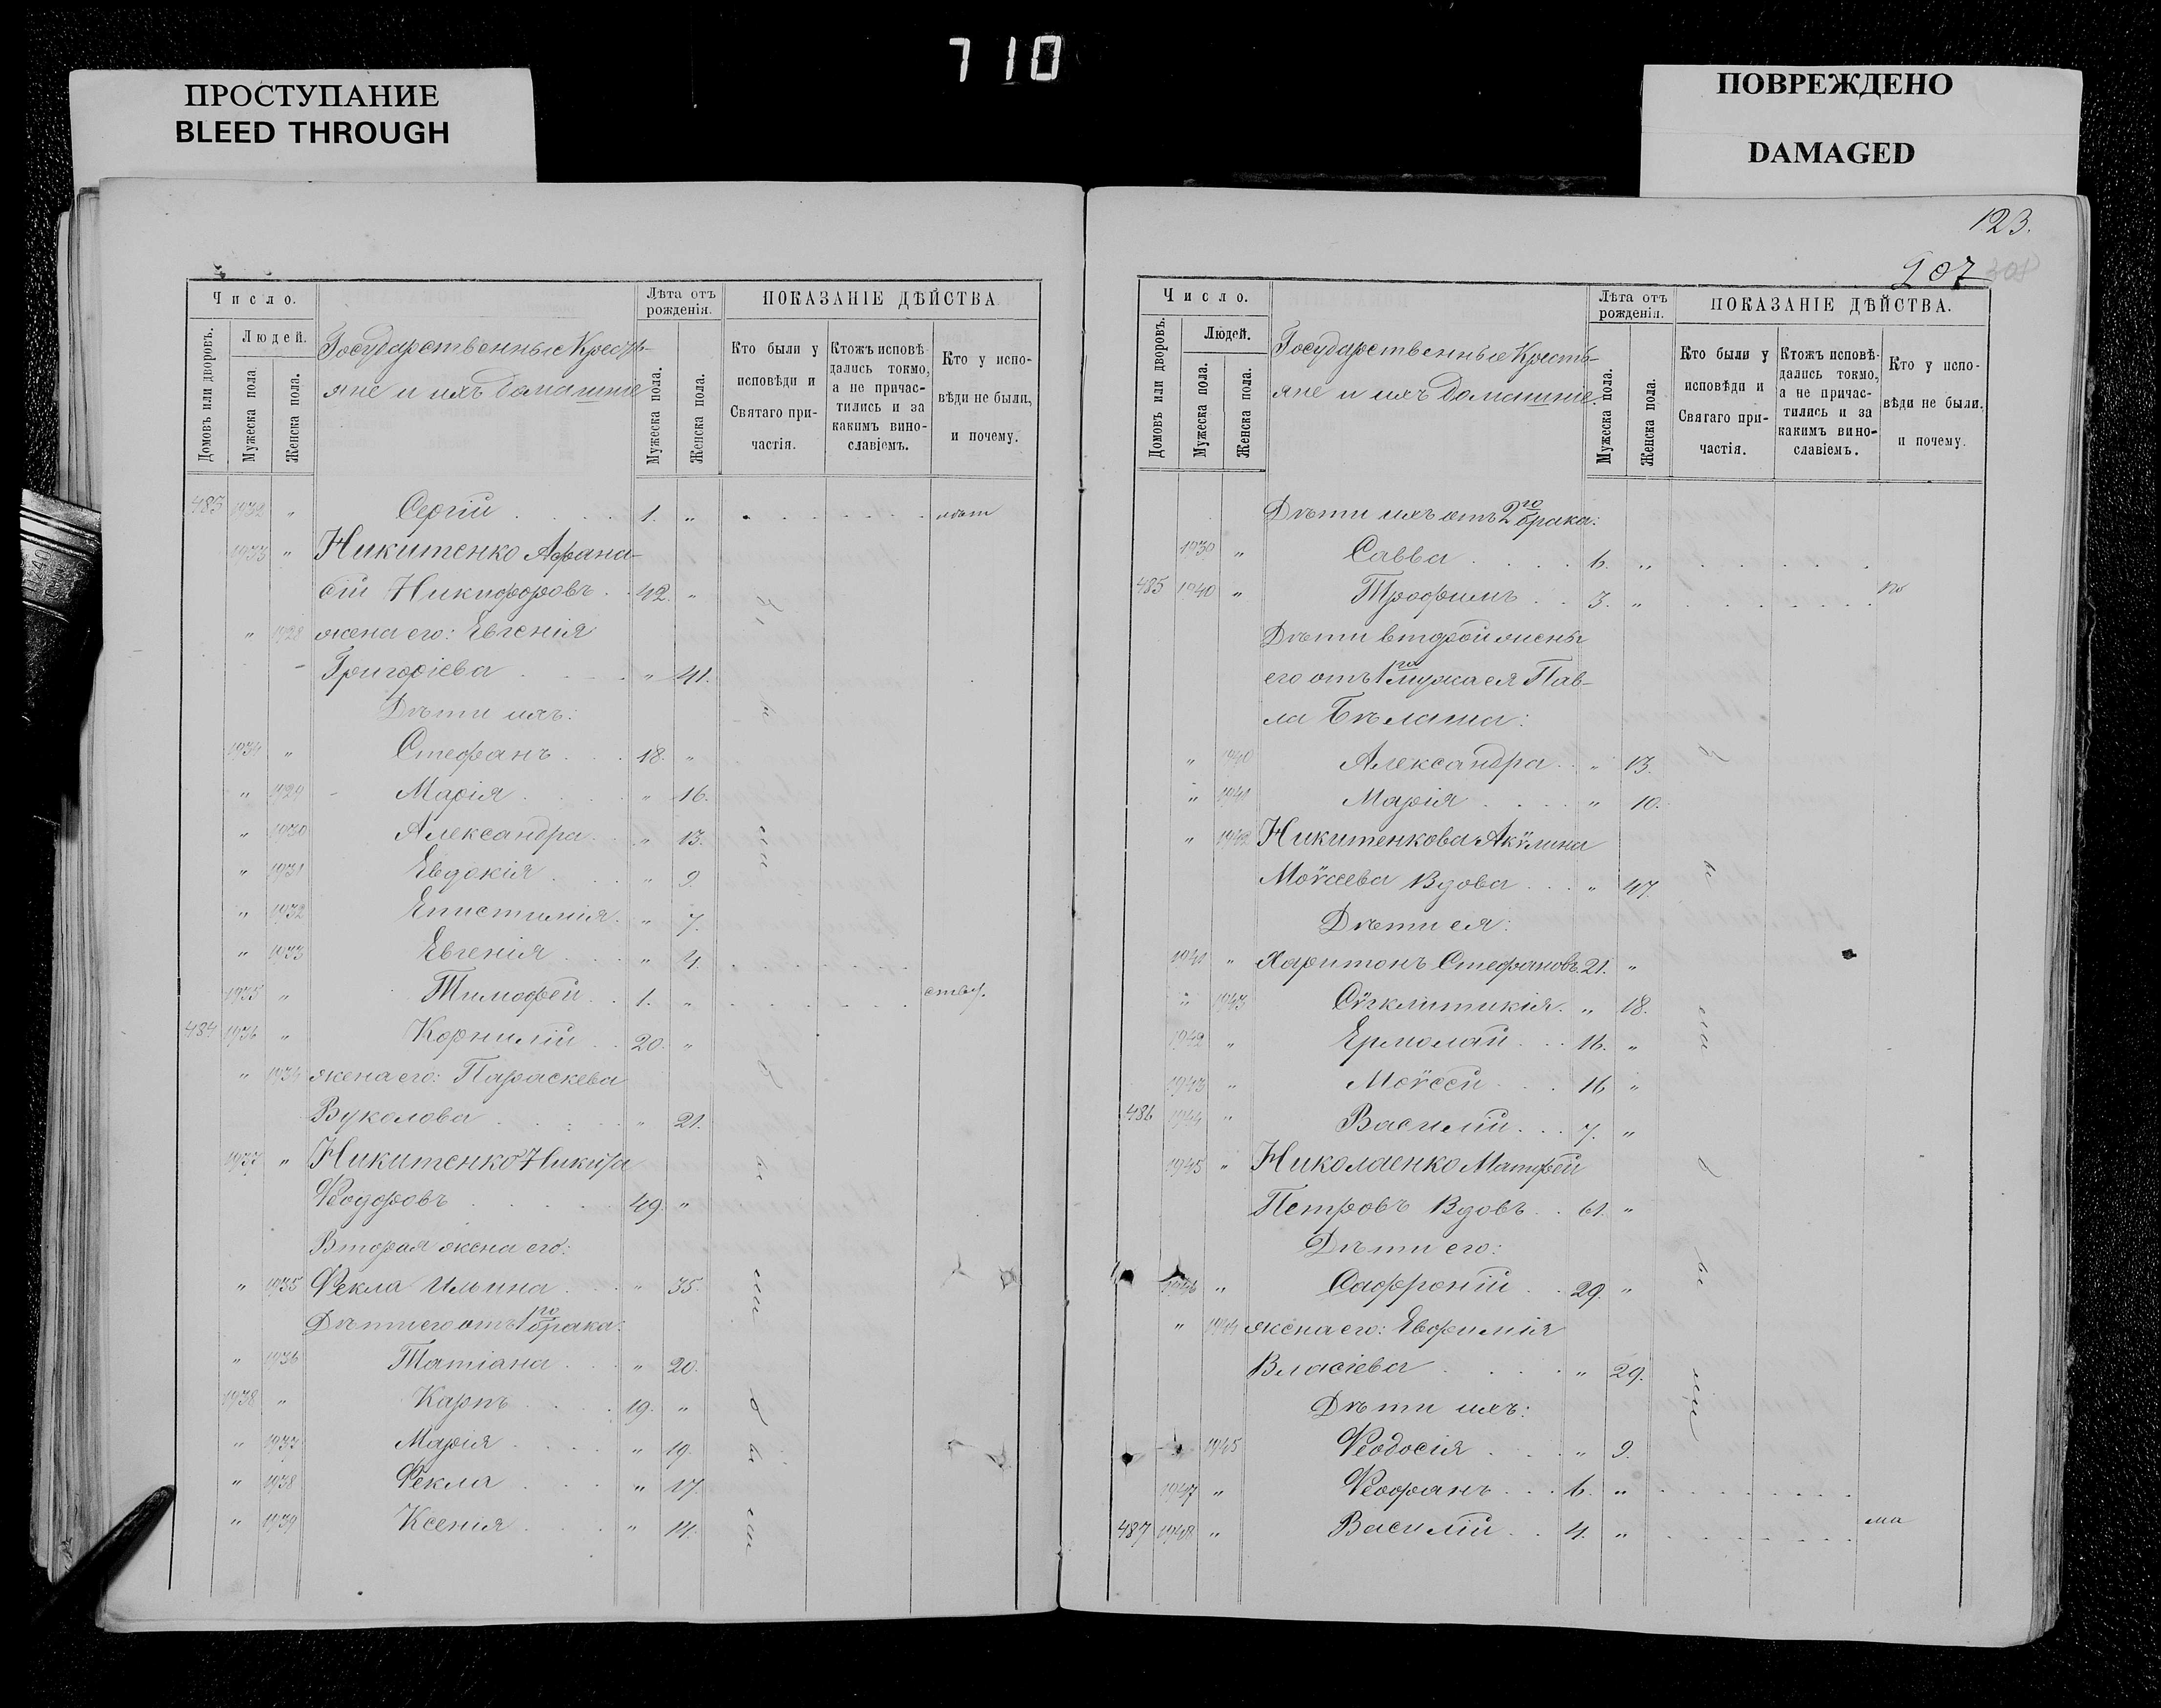 710
ПРОСТУПАНИЕ
BLEED THROUGH
ПОВРЕЖДЕНО
DAMAGED
Число.
Людей.
Домовъ или дворовъ.
Мужеска пола.
Женска пола.
Государственные Кресть-
яне и ихъ домашніе
Лѣта отъ
рожденія.
Мужеска пола.
Женска пола.
ПОКАЗАНІЕ ДѢЙСТВА
Кто были у
исповѣди и
Святаго при-
частія.
Ктожъ исповѣ-
дались токмо,
а не причас-
тились и за
какимъ вино-
славіемъ.
Кто у испо-
вѣди не были,
и почему.
483 1932 " Сергій 1. "
1933 " Никитенко Афана-
сій Никифоровъ 42. "
" 1928 жена его: Евгенія
Григоріева " 41.
Дѣти ихъ:
1934 " Стефанъ 18. "
" 1929 Марія " 16.
" 1930 Александра " 13.
" 1931 Евдокія " 9.
" 1932 Епистимія " 7.
" 1933 Евгенія " 4.
1935 " Тимофей 1. "
484 1936 " Корнилій 20. "
" 1934 жена его: Параскева
Вуколова " 21.
1937 " Никитенко
Ѳеодоровъ 49. "
Вторая жена его:
" 1935 Ѳекла Ильина " 35.
Дѣти его отъ 1го брака:
" 1936 Татіана " 20.
1938 " Карпъ 19. "
" 1937 Марія " 19.
" 1938 Ѳекла " 17.
" 1939 Ксенія " 14.
123.
207
Число.
Людей.
Домовъ или дворовъ.
Мужеска пола.
Женска пола.
Государственные Кресть-
яне и ихъ домашніе.
Лѣта отъ
рожденія.
Мужеска пола.
Женска пола.
ПОКАЗАНІЕ ДѢЙСТВА.
Кто были у
исповѣди и
Святаго при-
частія.
Ктожъ исповѣ-
дались токмо,
а не причас-
тились и за
какимъ вино-
славіемъ.
Кто у испо-
вѣди не были,
и почему.
Дѣти ихъ отъ 2го брака:
1939 " Савва 6. "
485 1940 " Трофимъ 3. "
Дѣти второй жены
его отъ 1го мужа ея Пав-
ла Бѣлаша:
" 1940 Александра " 13.
" 1941 Марія " 10.
" 1942 Никитенкова Акѵлина
Моѵсеева Вдова " 47.
Дѣти ея:
1941 " Харитонъ Стефановъ 21. "
" 1943 Сѵгклитикія " 18.
1942 " Ермолай 16. "
1943 " Моѵсей 16 "
486 1944 " Василій 7. "
1945 " Николаенко Матфей
Петровъ Вдовъ 61. "
Дѣти его:
1946 " Саффроній 29. "
" 1944 жена его: Евфимія
Власіева " 29.
Дѣти ихъ:
1945 Ѳеодосія " 9.
1947 " Ѳеофанъ 6. "
487 1948 " Василій 4. "